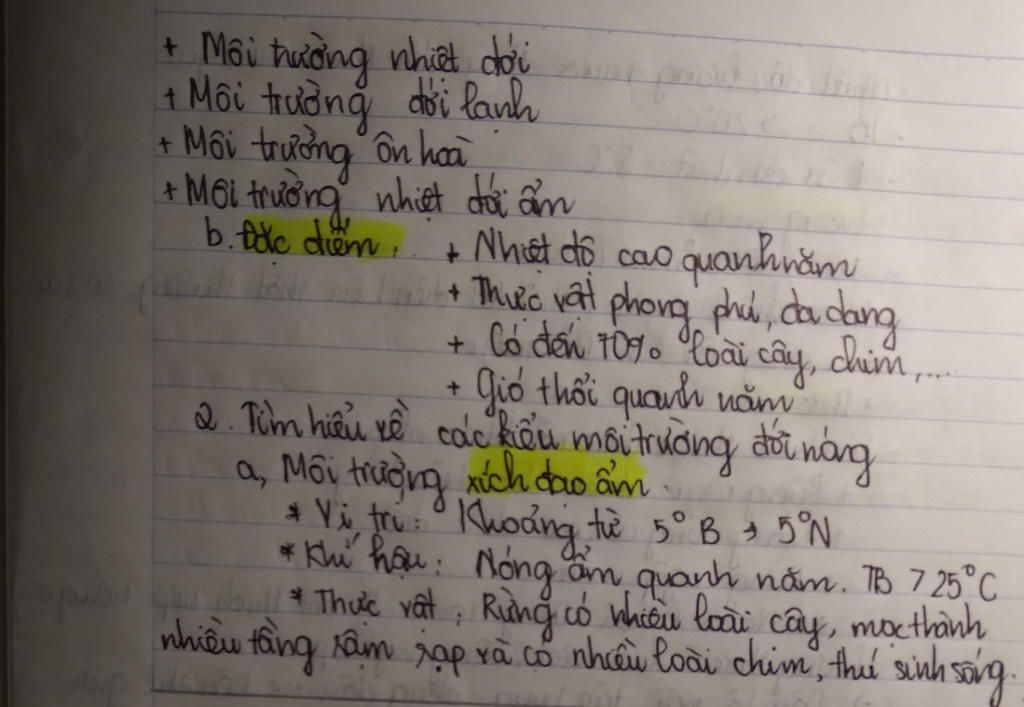 + Môi trường nhiệt đới
+ Môi trường đới lạnh
+ Môi trường ôn hoà
+ Môi trường nhiệt đới ẩm
b. Đặc điểm: + Nhiệt độ cao quanh năm
+ Thực vật phong phú, đa dạng
+ Có đến 70% loài cây, chim,...
+ Gió thổi quanh năm
2. Tìm hiểu về các kiểu môi trường đới nóng
a, Môi trường xích đạo ẩm.
* Vị trí: Khoảng từ 5°B → 5°N
* Khí hậu: Nóng ẩm quanh năm. TB > 25°C
* Thực vật: Rừng có nhiều loài cây, mọc thành
nhiều tầng rậm rạp và có nhiều loài chim, thú sinh sống.